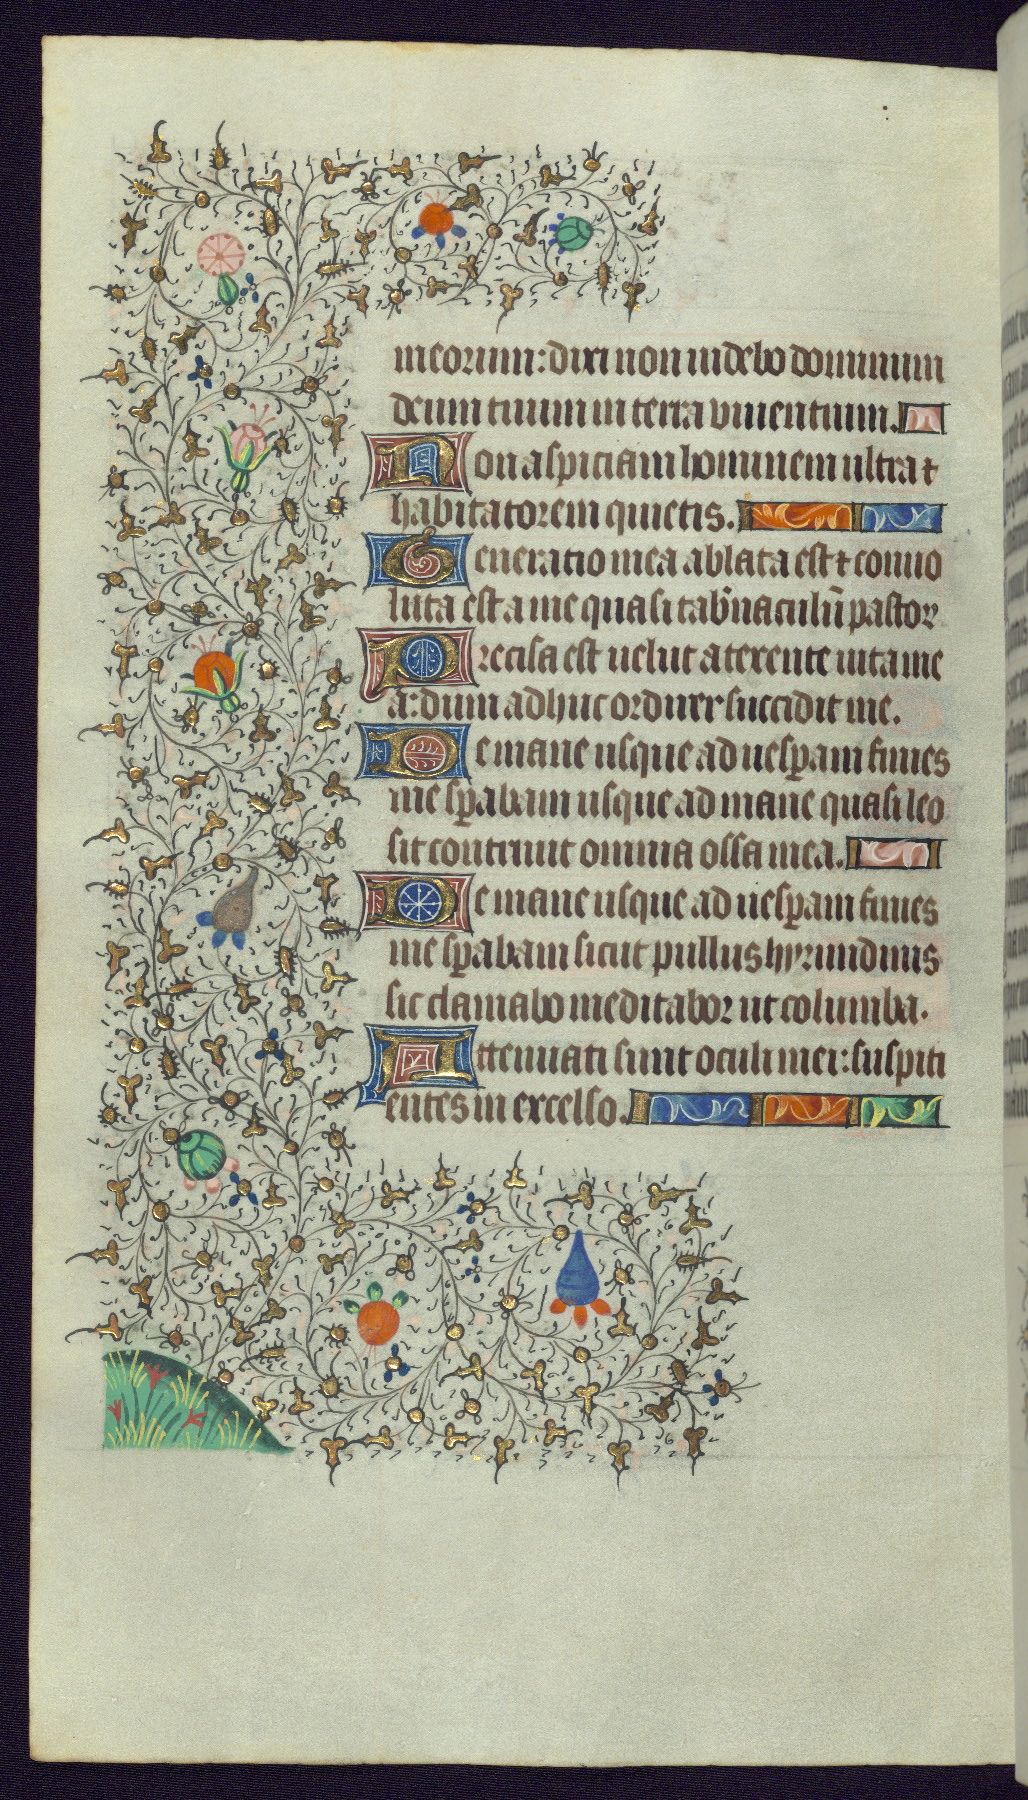 meorum: dixi non videbo dominum
deum tuum in terra viuentium.
Non aspiciam hominem ultra ⁊
habitatorem quietis.
Generatio mea ablata est ⁊ conuo
luta est a me quasi tab̄naculū pastor
Precisa est uelut a texente uita me
a: dum adhuc ordirer succidit me.
De mane usque ad uesꝑam finies
me sꝑabam usque ad mane quasi leo
sit contriuit omnia ossa mea.
De mane usque ad uesꝑam finies
me sꝑabam sicut pullus hyrundinis
sic clamabo meditabor ut columba.
Attenuati sunt oculi mei: suspiti
entes in excelso.